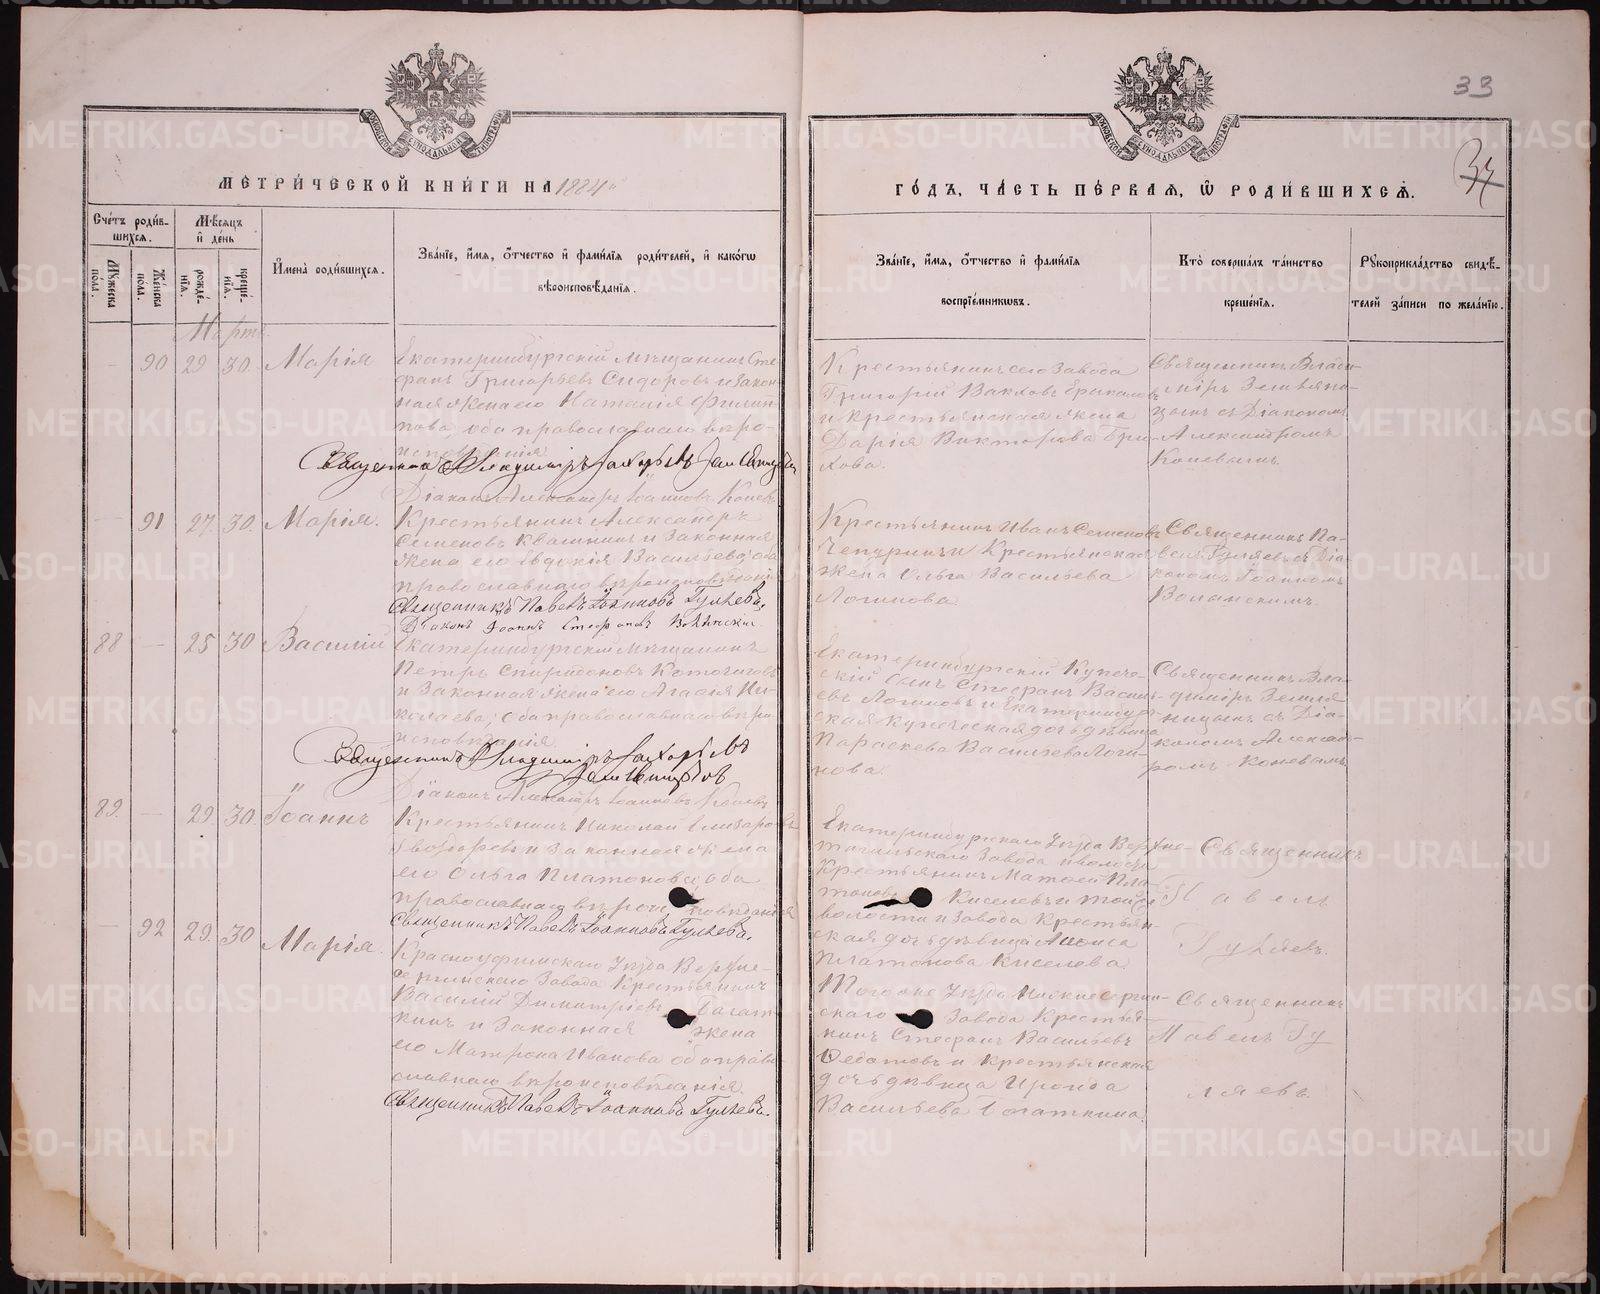 33
34
МЕТРИ́ЧЕСКОЙ КНИ́ГИ НА 1884
ГО́ДЪ, ЧА́СТЬ ПЕ́РВАЯ, Ѡ РОДИ́ВШИХСЯ.
Сче́тъ роди́в-
шихся.
Мѣ́сяцъ
и де́нь
Му́жеска
по́ла.
Же́нска
по́ла.
рожде́-
нїя.
креще́-
нїя.
Имена̀ роди́вшихся.
Зва́нїе, и́мя, о́тчество и фами́лїя роди́телей, и како́гѡ
вѣроисповѣ́данїя.
Зва́нїе, и́мя, о́тчество и фами́лїя
воспрїе́мниковъ.
Кто̀ соверша́лъ та́инство
креще́нїя.
Рукоприкла́дство свидѣ́-
телей за́писи по жела́нїю.
Марта
90 29 30. Марія
Екатеринбургскій мѣщанинъ Сте-
фанъ Григорьевъ Сидоровъ и закон-
ная жена его Наталія Филип-
пова, оба православнаго вѣро-
исповѣданія
Священникъ Владиміръ Захарьевъ Земляницынъ
Діаконъ Александръ Іоанновъ Коневъ
Крестьянинъ сего Завода
Григорій
и крестьянская жена
Дарія Викторова Гри-
хова.
Священникъ Влади-
міръ Земляни-
цынъ съ Діакономъ
Александромъ
Коневымъ.
91 27 30. Марія.
Крестьянинъ Александръ
Семеновъ Квашнинъ и Законная
жена его Евдокія Васильева, оба
православнаго вѣроисповѣданія
Священникъ Павелъ Іоанновъ Гуляевъ.
Діаконъ Іоаннъ Стефановъ Волынскій.
Крестьянинъ Иванъ Семеновъ
Чепуринъ и Крестьянская
жена Ольга Васильева
Логинова
Священникъ Па-
велъ Гуляевъ съ Діа-
кономъ Іоанномъ
Волынскимъ.
88 — 25 30 Василій
Екатеринбургскій мѣщанинъ
Петръ Спиридоновъ
и Законная жена его Агафія Ни-
колаева, оба православнаго вѣро
исповѣданія
Священникъ Владиміръ Захарьевъ
Земляницынъ
Діаконъ Александръ Іоанновъ Коневъ
Екатеринбургскій Купече-
скій сынъ Стефанъ Василь-
евъ Логиновъ и Екатеринбург-
ская купеческая дочь дѣвица
Параскева Васильева Логи-
нова.
Священникъ Вла-
диміръ Земля
ницынъ съ Діа-
кономъ Алексан-
дромъ Коневымъ
89. — 29 30. Іоаннъ
Крестьянинъ Николай Елизаровъ
и законная жена
его Ольга Платонова, оба
православнаго вѣроисповѣданія
Священникъ Павелъ Іоанновъ Гуляевъ.
Екатеринбургскаго Уѣзда Верхне-
тагильскаго Завода и волости
Крестьянинъ Матѳей Пла-
тоновъ Киселевъ и той же
волости и завода Крестьян-
ская дочь дѣвица Анфиса
Платонова Киселева.
Священникъ
Павелъ
Гуляевъ.
— 92 29. 30 Марія.
Красноуфимскаго Уѣзда Верхне-
сергинскаго Завода Крестьянинъ
Василій Димитріевъ Богат-
кинъ и Законная жена
его Матрона Иванова оба право-
славнаго вѣроисповѣданія.
Священникъ Павелъ Іоанновъ Гуляевъ.
Того же Уѣзда Нижнесергин-
скаго Завода Крестья-
нинъ Стефанъ Васильевъ
и крестьянская
дочь дѣвица Ироида
Васильева Богаткина.
Священникъ
Павелъ Гу
ляевъ.
METRIKI.GASO-URAL.RU